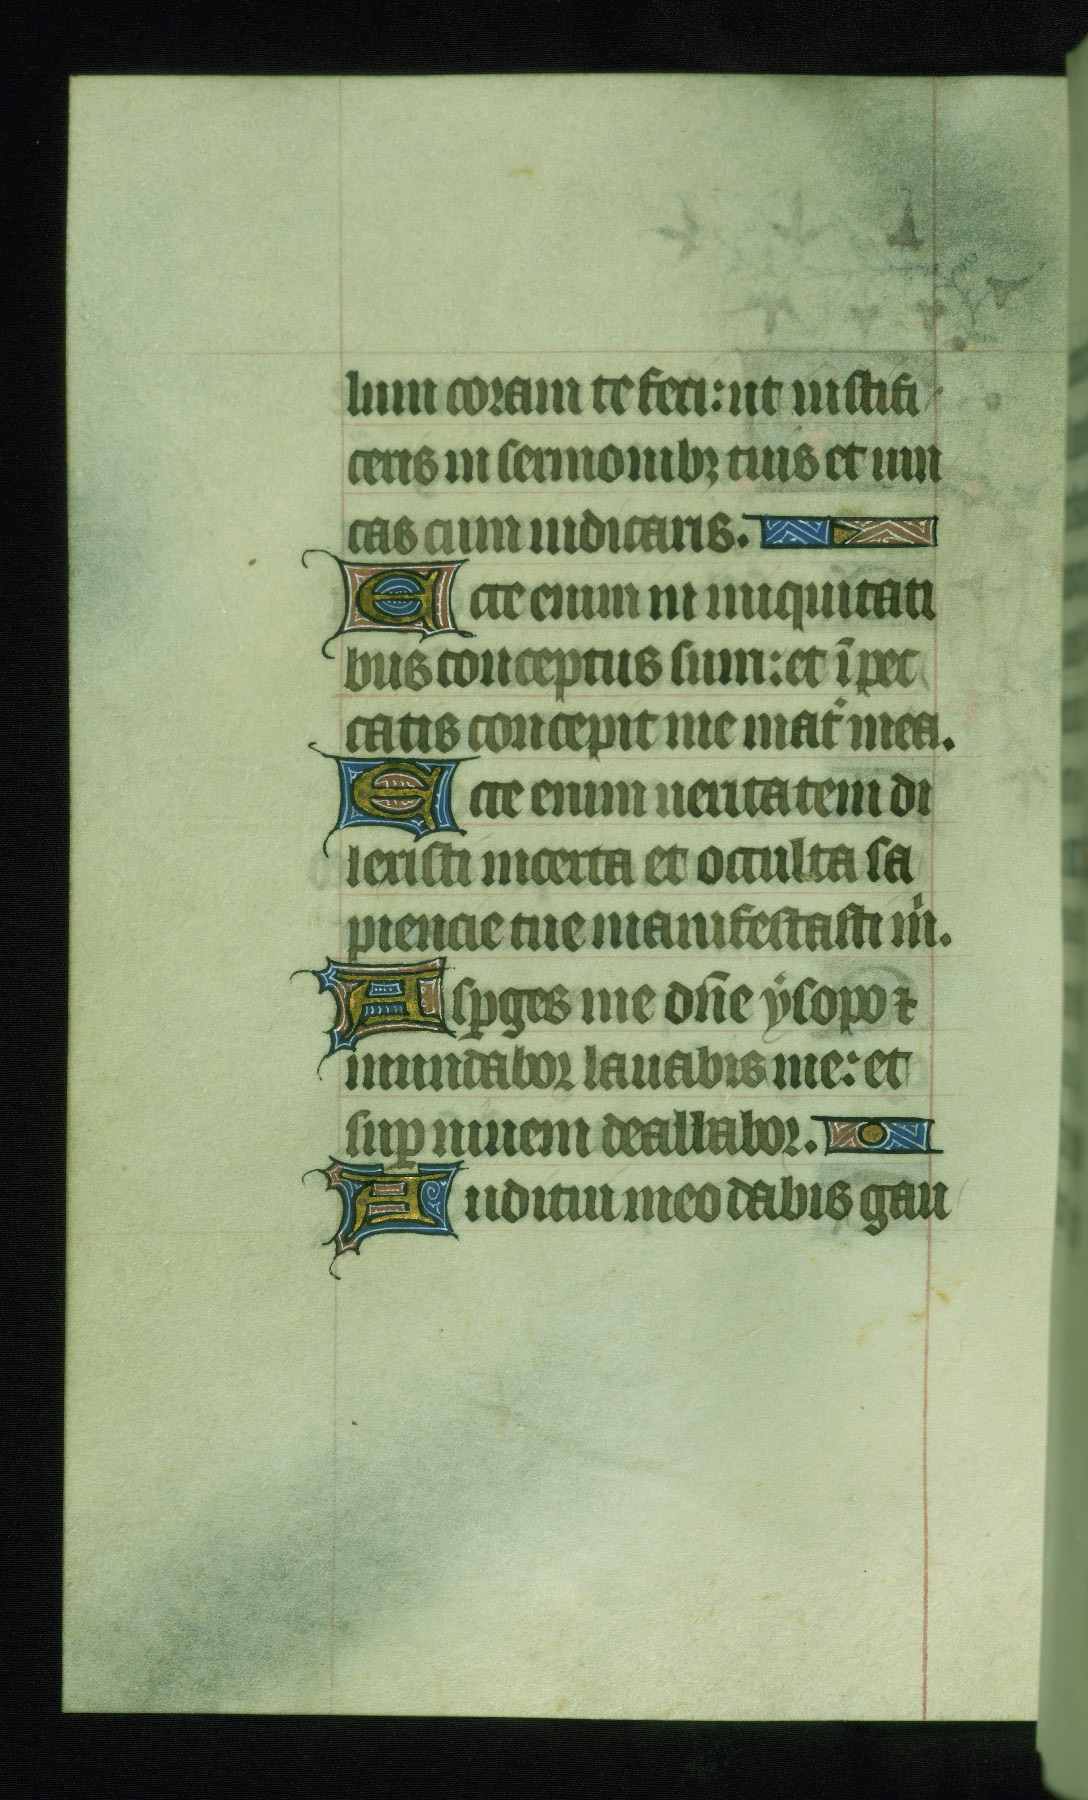 lum coram te feci: ut iustifi
ceris in sermonibꝫ tuis et uin
cas cum iudicaris.
Ecce enim in iniquitati
bus conceptus sum: et ī pec
catis concepit me mat᷑ mea.
Ecce enim ueritatem di
lexisti incerta et occulta sa
piencie tue manifestasti m̄.
Asꝑges me dn̄e ẏsopo ⁊
mundabor lauabis me: et
suꝑ niuem dealbabor.
Auditui meo dabis gau